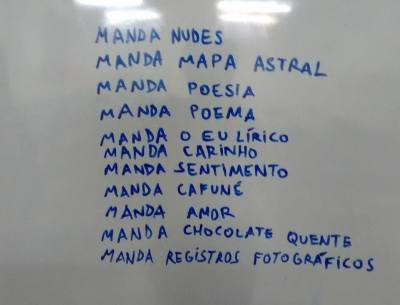 MANDA NUDES
MANDA MAPA ASTRAL
MANDA POESIA
MANDA POEMA
MANDA O EU LÍRICO
MANDA CARINHO
MANDA SENTIMENTO
MANDA CAFUNÉ
MANDA AMOR
MANDA CHOCOLATE QUENTE
MANDA REGISTROS FOTOGRÁFICOS